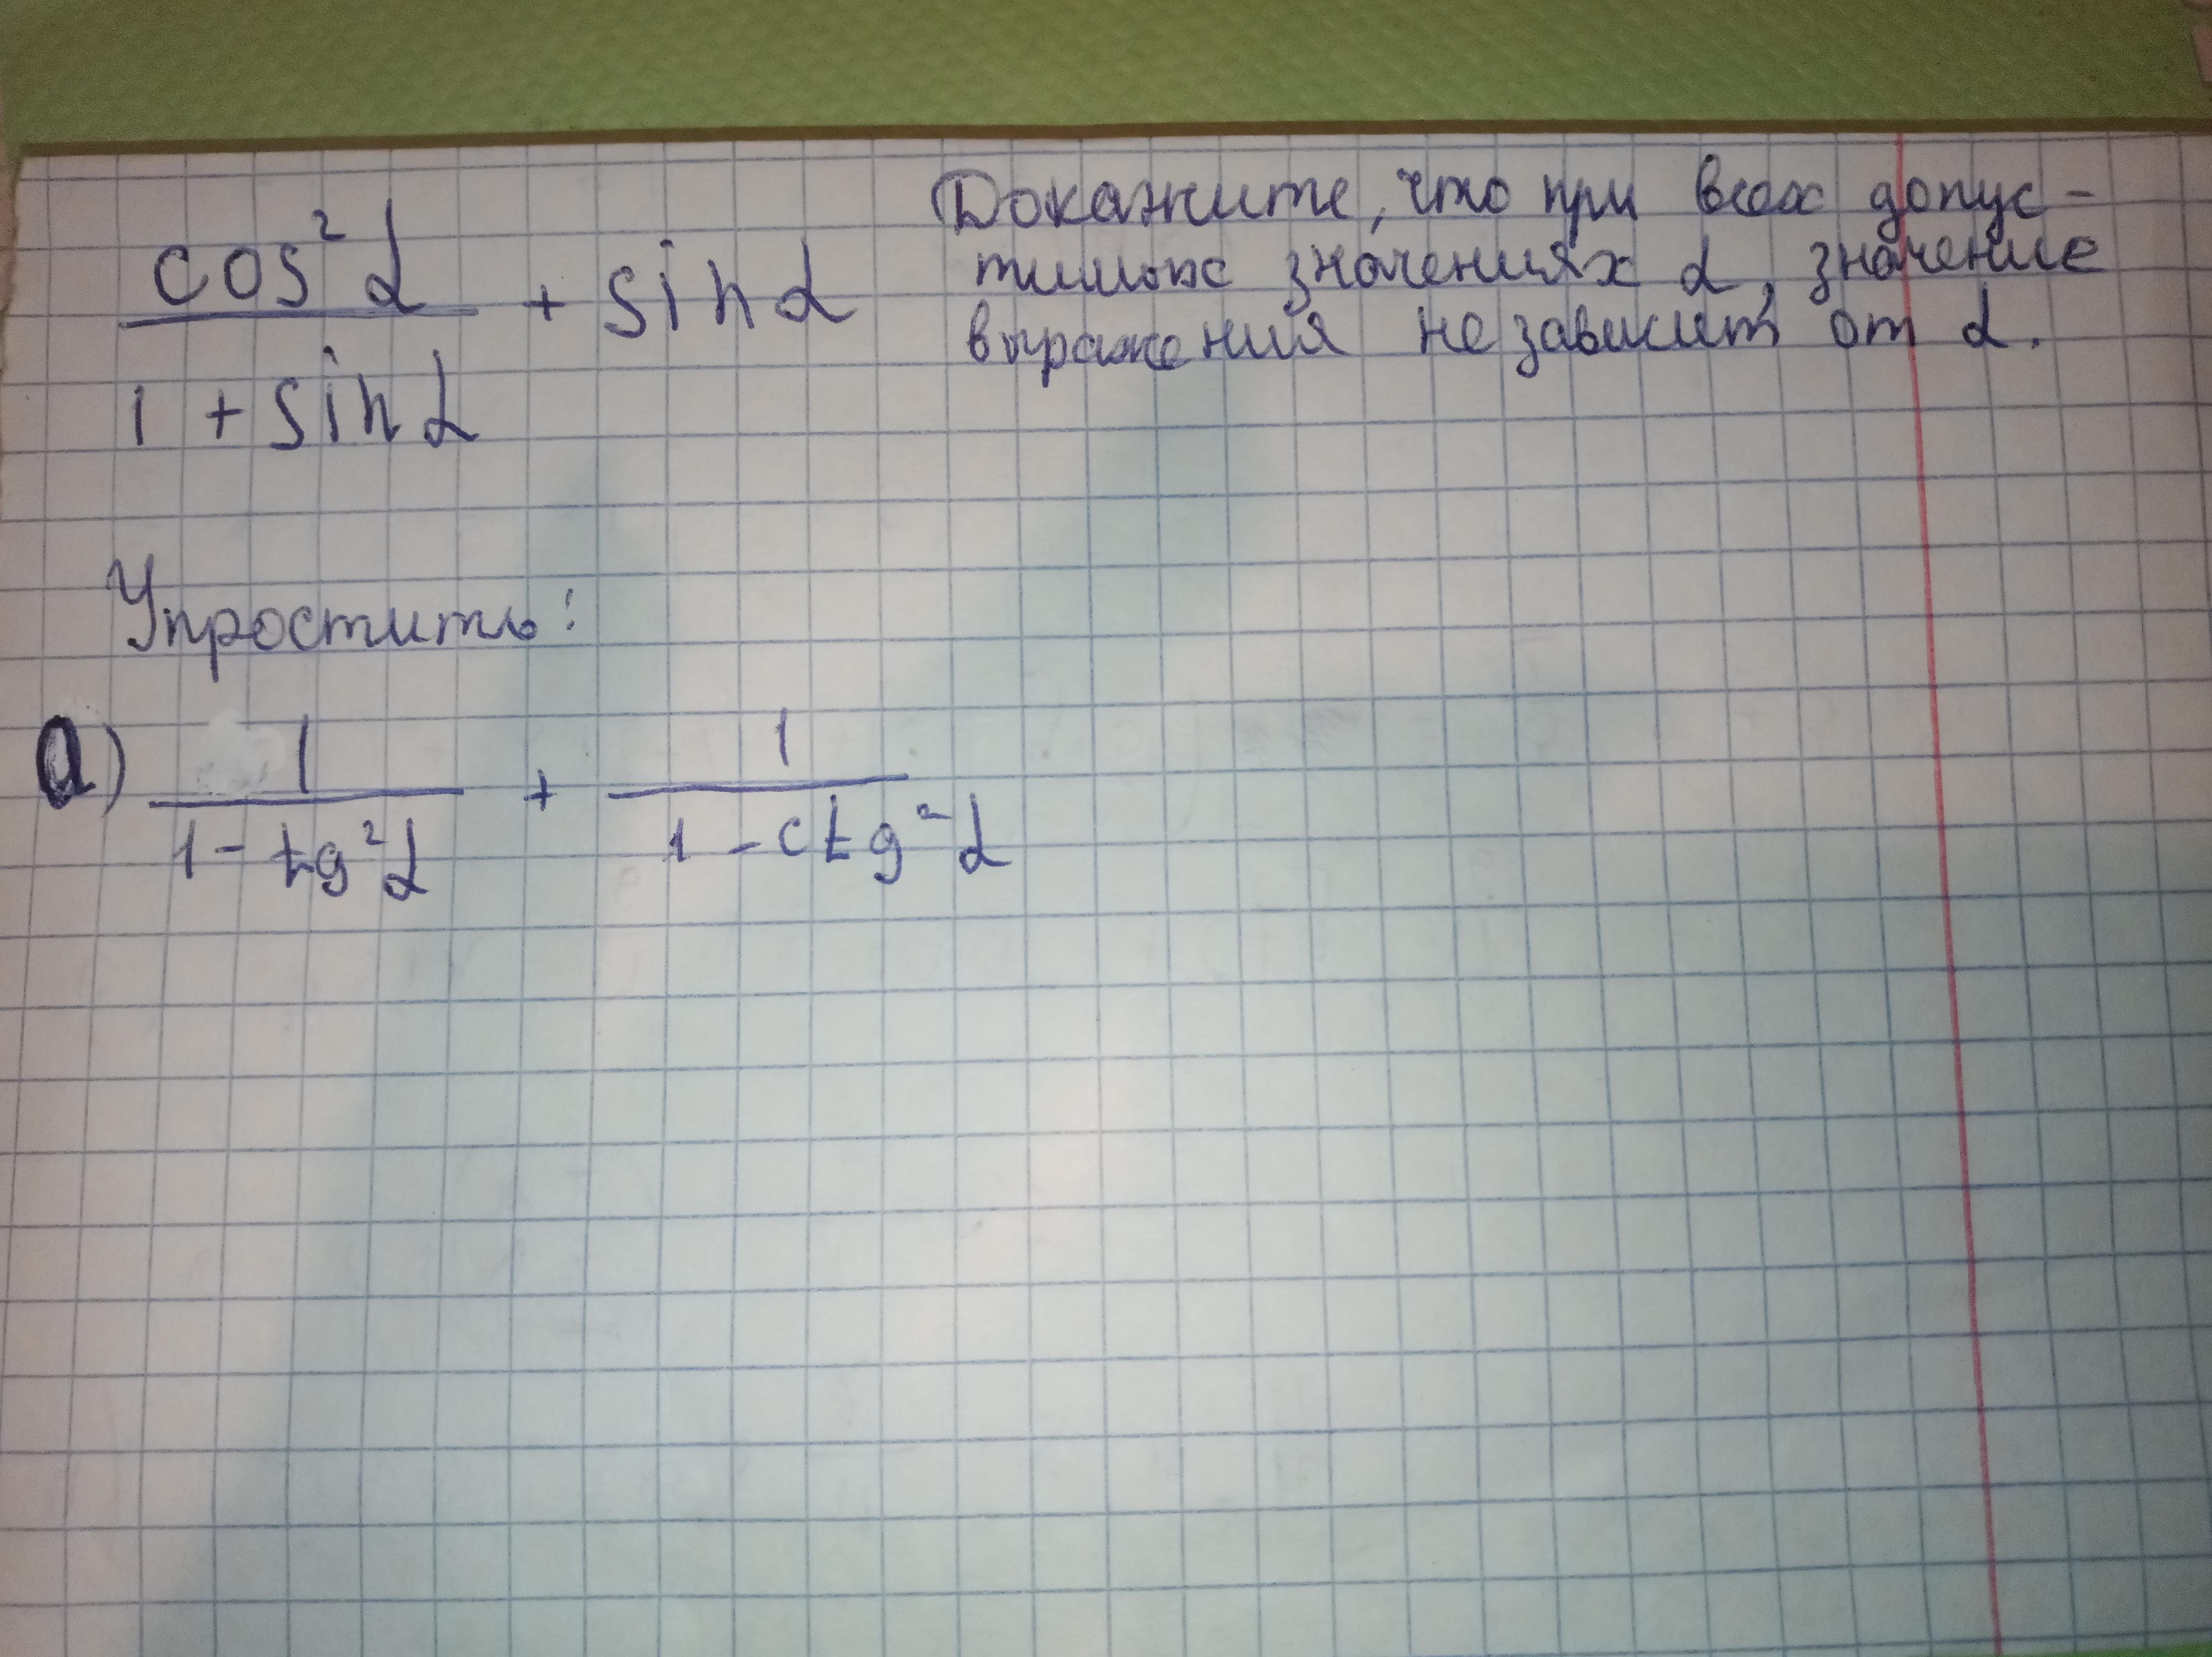 cos²α / (1 + sinα) + sinα
Докажите, что при всех допус-
тимых значениях α, значение
выражения не зависит от α.
Упростить:
а) 1 / (1 - tg²α) + 1 / (1 - ctg²α)